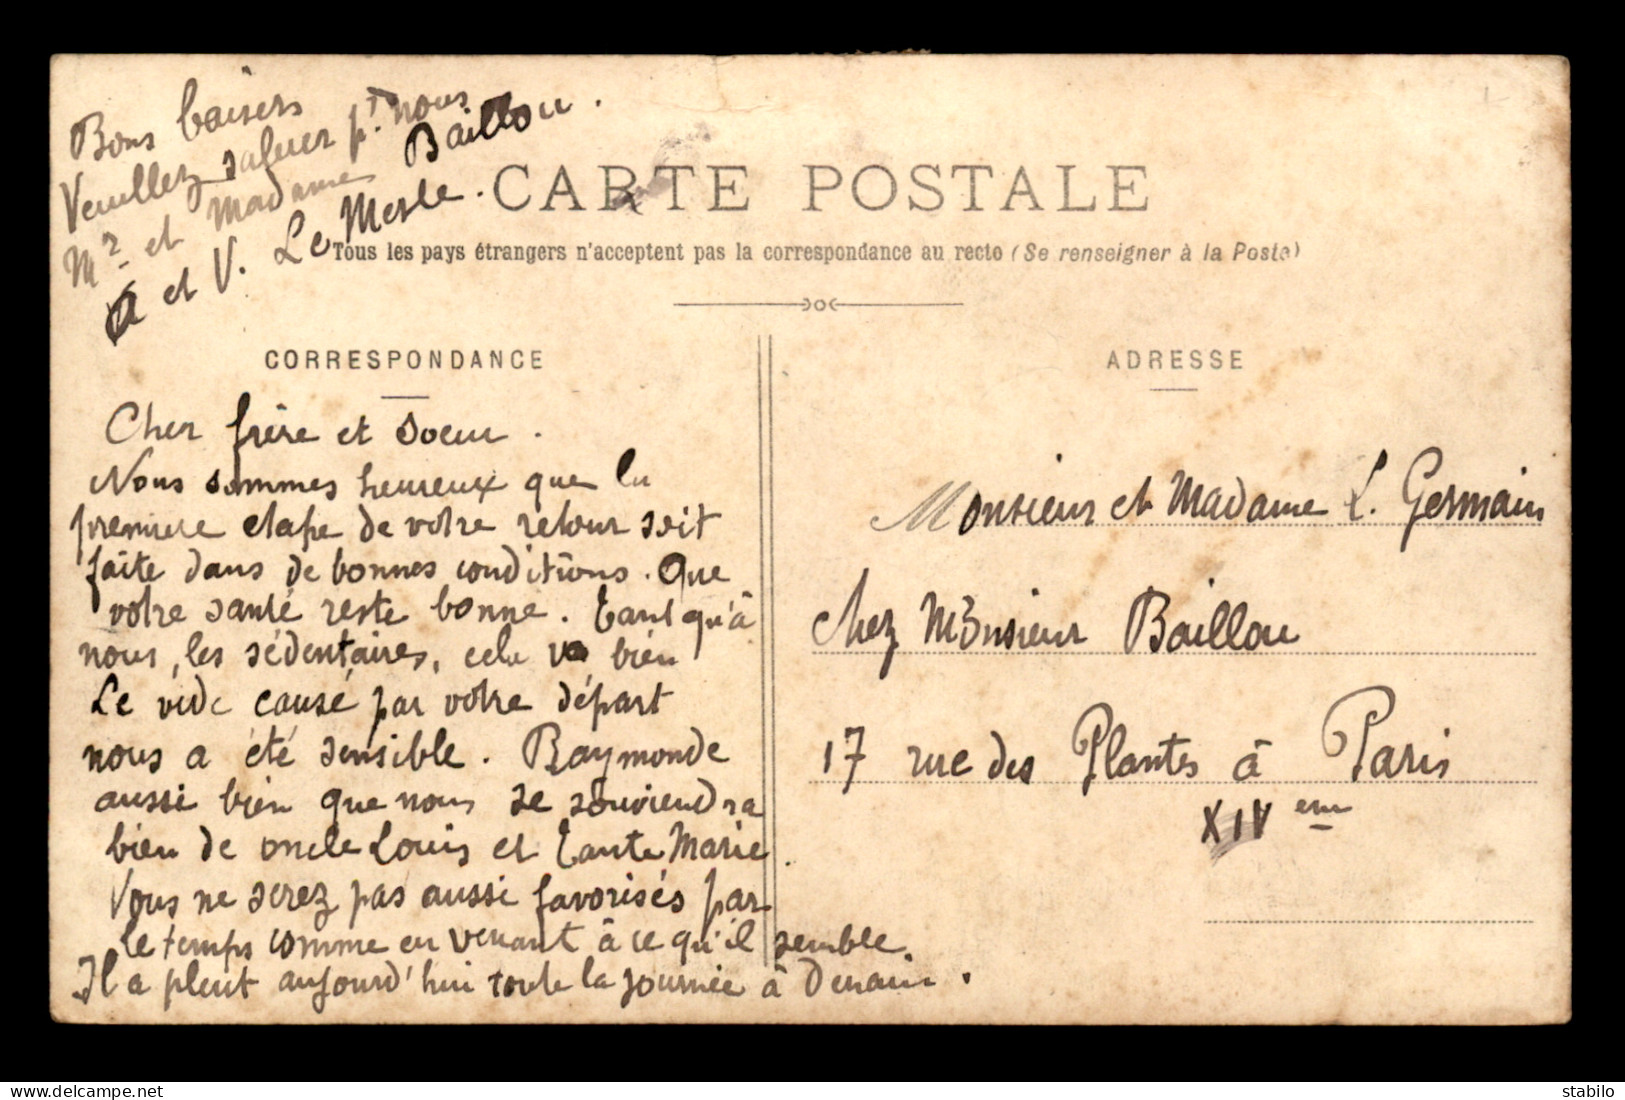 Bons baisers
Veuillez saluer pr. nous
Mr et Madame Baillou.
A et V. Le Mesle.
CARTE POSTALE
Tous les pays étrangers n'acceptent pas la correspondance au recto (Se renseigner à la Poste)
CORRESPONDANCE
Cher frère et soeur.
Nous sommes heureux que la
premiere etape de votre retour soit
faite dans de bonnes conditions. Que
votre santé reste bonne. Tant qu'à
nous, les sédentaires, cela va bien
Le vide causé par votre départ
nous a été sensible. Raymonde
aussi bien que nous se souviendra
bien de oncle Louis et Tante Marie.
Vous ne serez pas aussi favorisés par
le temps comme en venant à ce qu'il semble.
Il a pleut aujourd'hui toute la journée à Denain.
ADRESSE
Monsieur et Madame L. Germain
chez Monsieur Baillou
17 rue des Plantes à Paris
XIV eme
stabilo